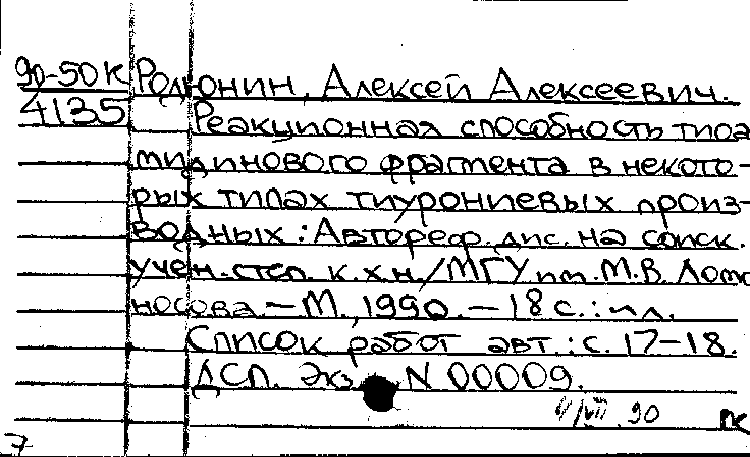 90-50К Родионин, Алексей Алексеевич.
4135 Реакционная способность тиоа
мидинового фрагмента в некото-
рых типах тиурониевых произ-
водных: Автореф. дис. на соиск.
учен. степ. к.х.н./МГУ им. М.В. Ломо
носова – М., 1990. – 18 с.: ил.
Список работ авт.: с. 17–18.
ДСП. Экз. N 00009.
90
7